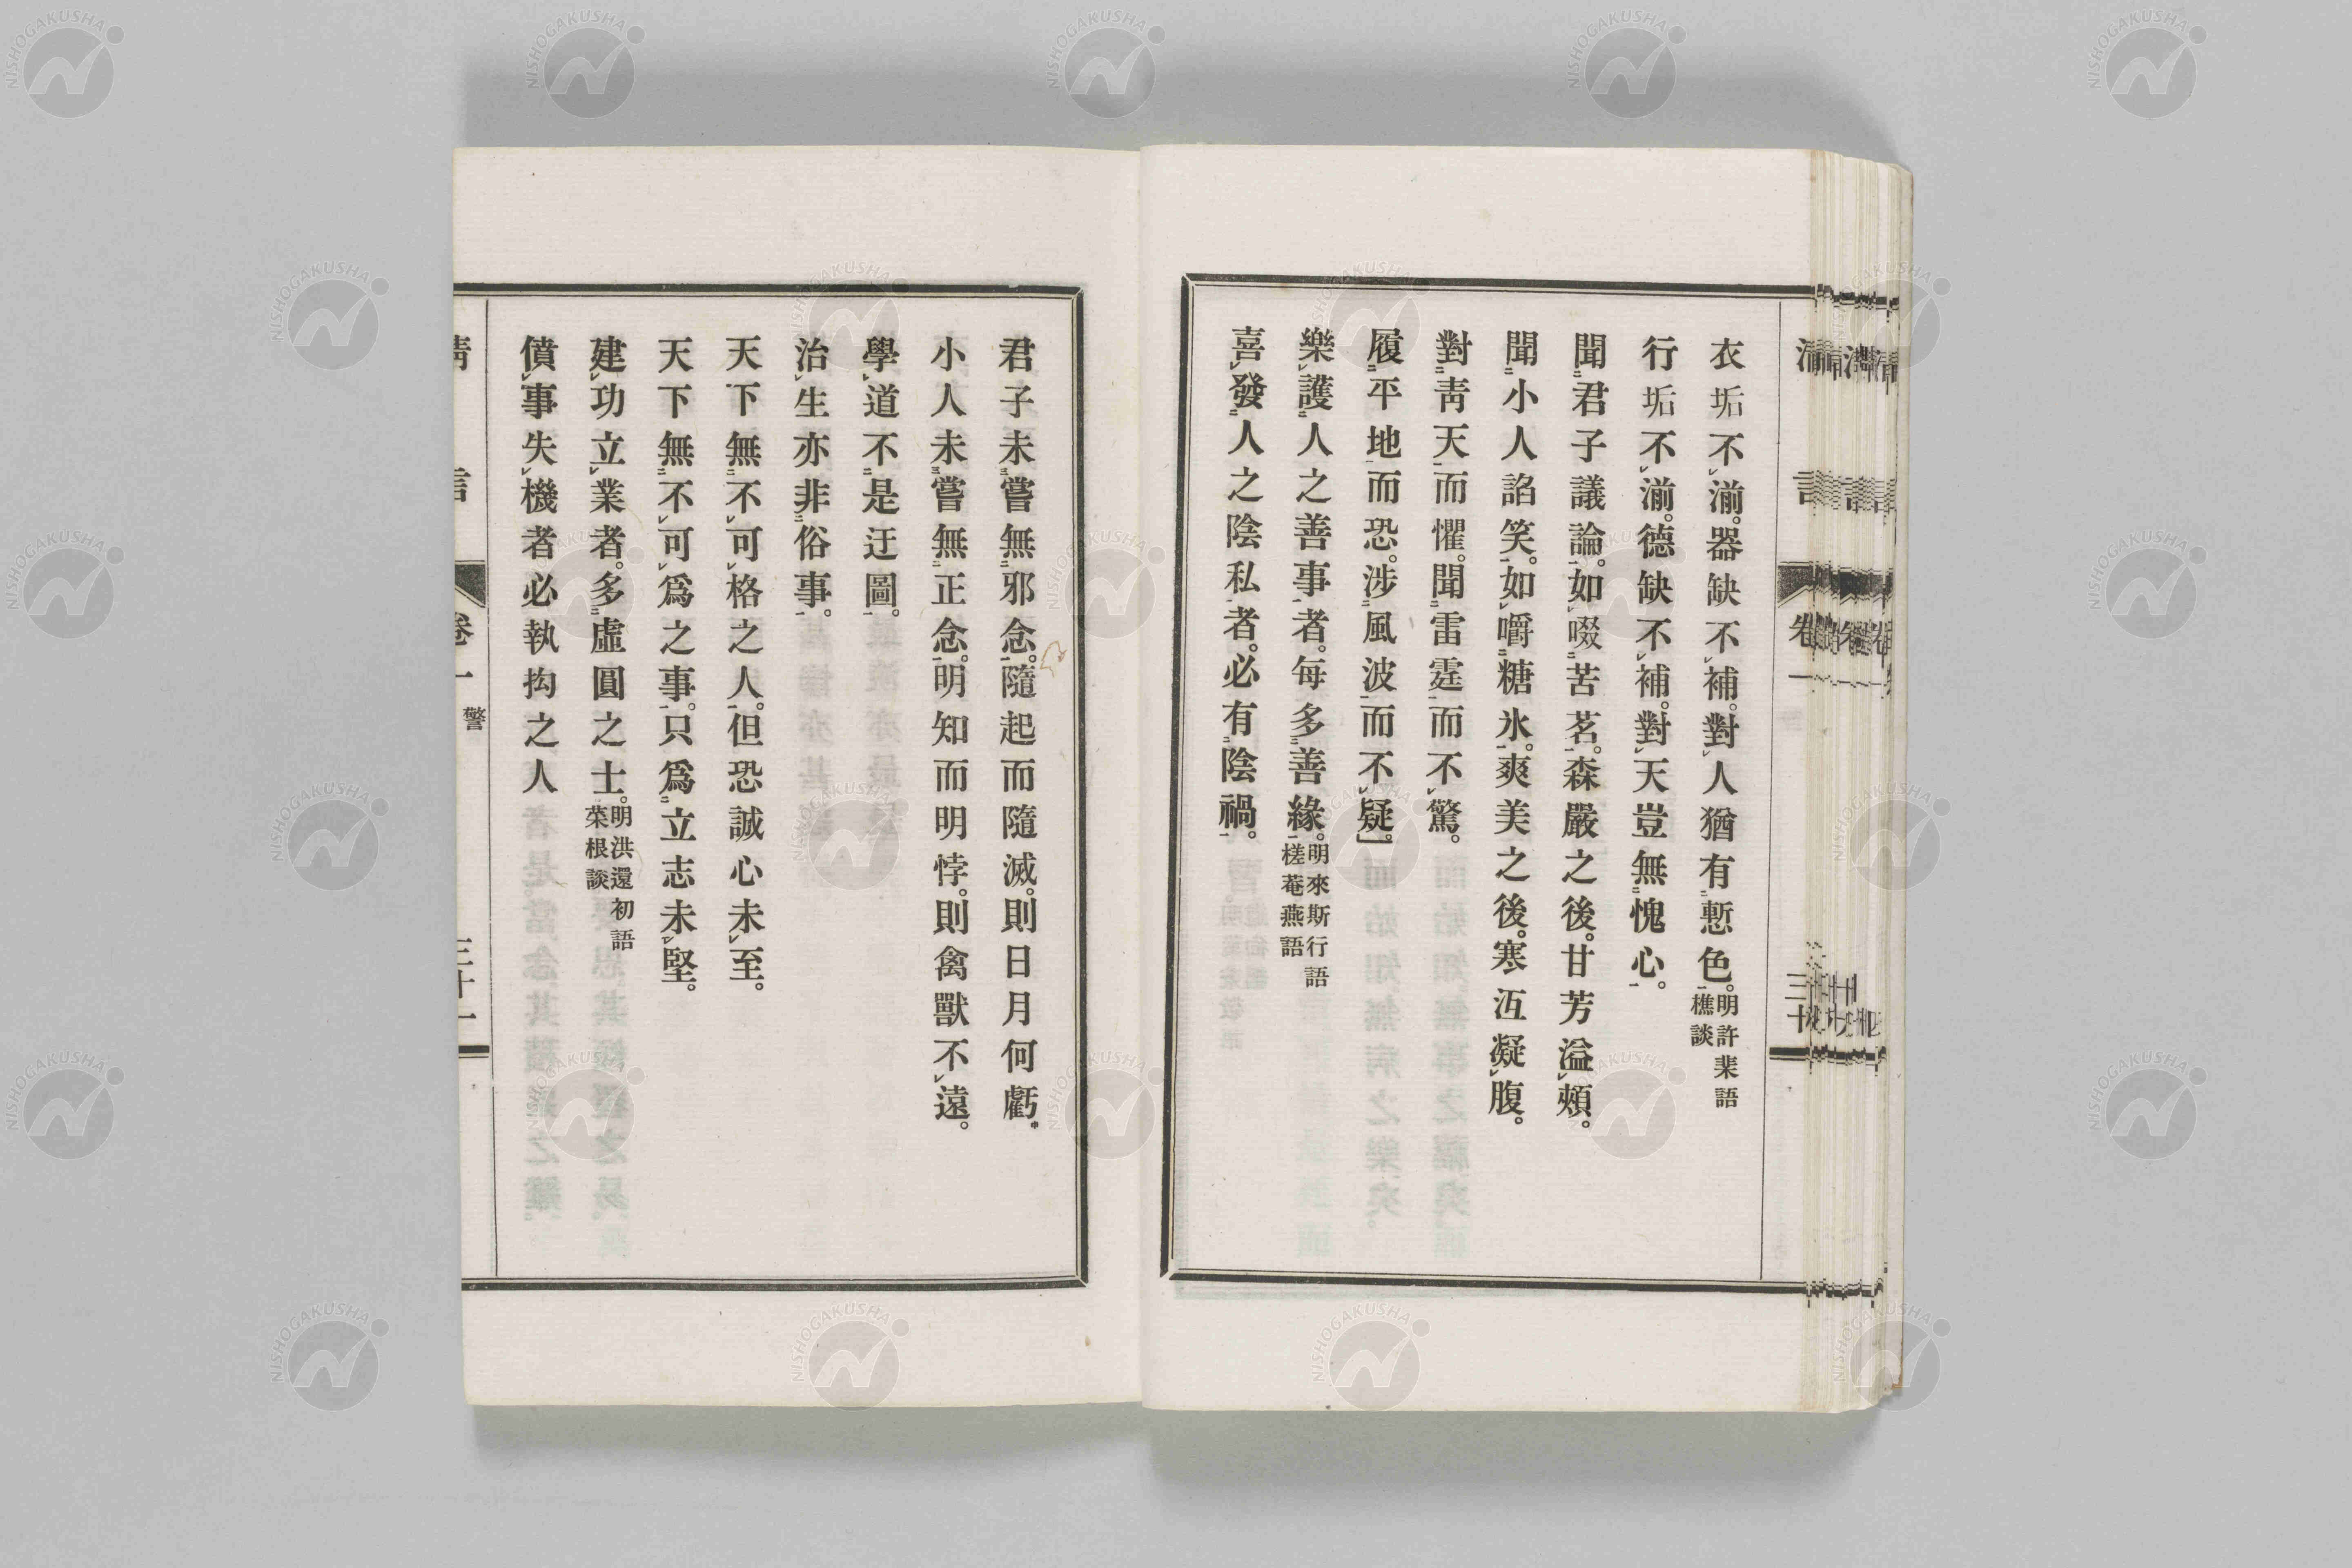 衣垢不湔。器缺不補。對人猶有慙色。明許棐語樵談
行垢不湔。德缺不補。對天豈無愧心。
聞君子議論。如啜苦茗。森嚴之後。甘芳溢頰。
聞小人諂笑。如嚼糖氷。爽美之後。寒沍凝腹。
對靑天而懼。聞雷霆而不驚。
履平地而恐。涉風波而不疑。
樂護人之善事者。每多善緣。明來斯行語槎菴燕語
喜發人之陰私者。必有陰禍。
君子未嘗無邪念。隨起而隨滅。則日月何虧。
小人未嘗無正念。明知而明悖。則禽獸不遠。
學道不是迂圖。
治生亦非俗事。
天下無不可格之人。但恐誠心未至。
天下無不可爲之事。只爲立志未堅。
建功立業者。多虛圓之士。明洪還初語菜根談
僨事失機者必執拘之人
卷一 警
三十一
NISHOGAKUSHA